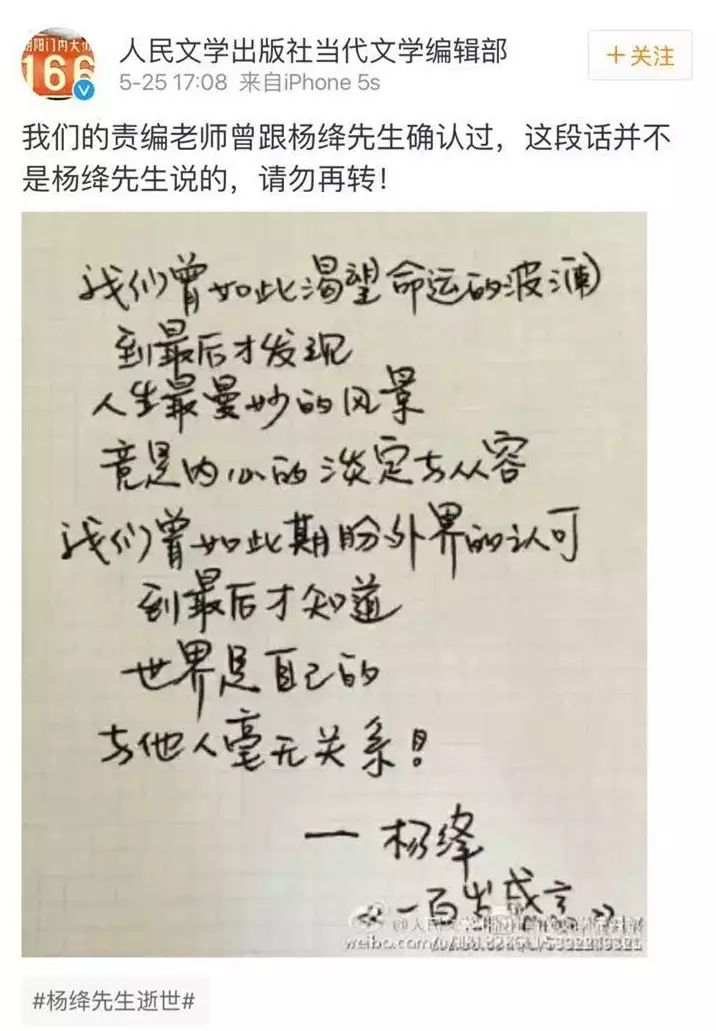 朝阳门内大街
166
人民文学出版社当代文学编辑部
5-25 17:08 来自iPhone 5s
+关注
我们的责编老师曾跟杨绛先生确认过，这段话并不
是杨绛先生说的，请勿再转！
我们曾如此渴望命运的波澜
到最后才发现
人生最曼妙的风景
竟是内心的淡定与从容
我们曾如此期盼外界的认可
到最后才知道
世界是自己的
与他人毫无关系！
— 杨绛
《一百岁感言》
@人民文学出版社
weibo.com/
#杨绛先生逝世#